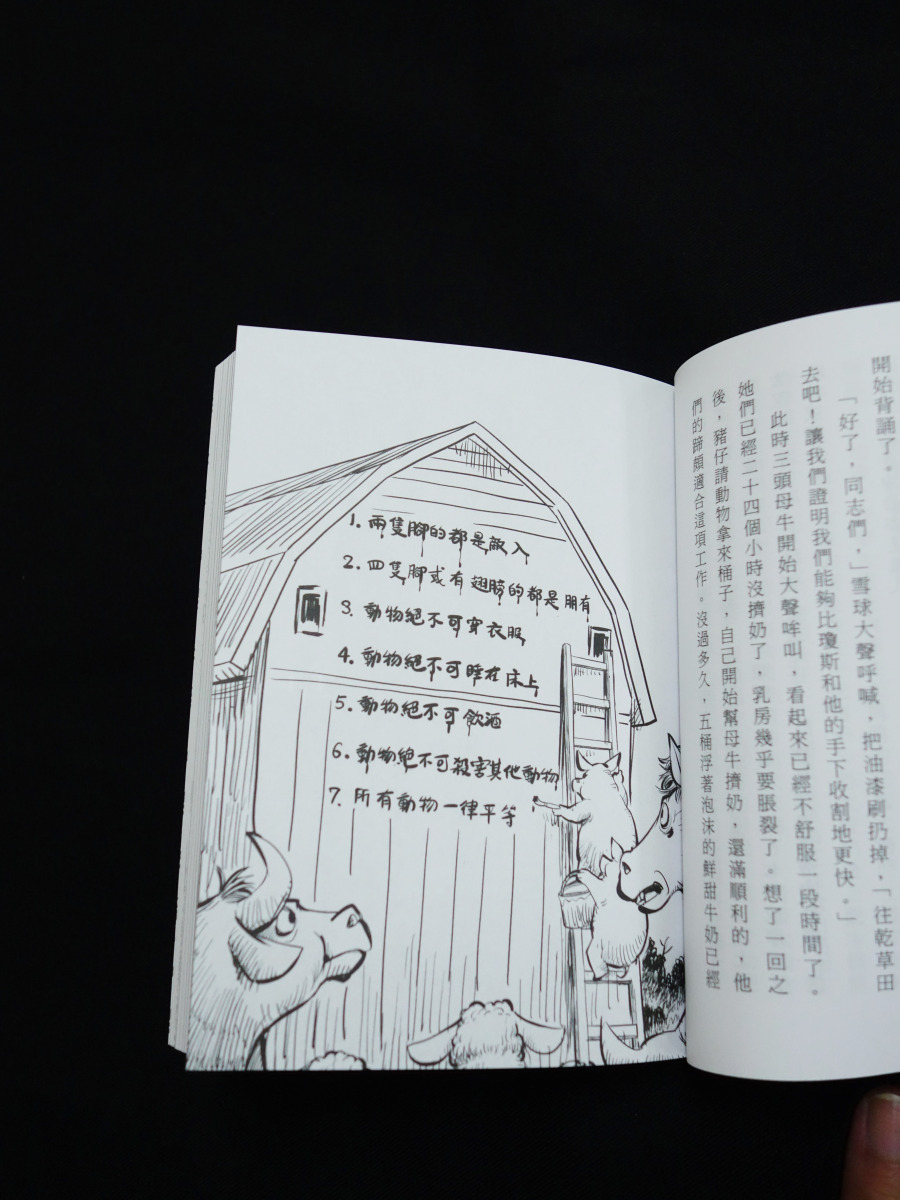 開始背誦了。
「好了，同志們，」雪球大聲呼喊，把油漆刷扔掉，「往乾草田
去吧！讓我們證明我們能夠比瓊斯和他的手下收割地更快。」
此時三頭母牛開始大聲哞叫，看起來已經不舒服一段時間了。
她們已經二十四個小時沒擠奶了，乳房幾乎要脹裂了。想了一回之
後，豬仔請動物拿來桶子，自己開始幫母牛擠奶，還滿順利的，他
們的蹄頗適合這項工作。沒過多久，五桶浮著泡沫的鮮甜牛奶已經
1. 兩隻腳的都是敵入
2. 四隻腳或有翅膀的都是朋有
3. 動物絕不可穿衣服
4. 動物絕不可睡在床上
5. 動物絕不可飲酒
6. 動物絕不可殺害其他動物
7. 所有動物一律平等